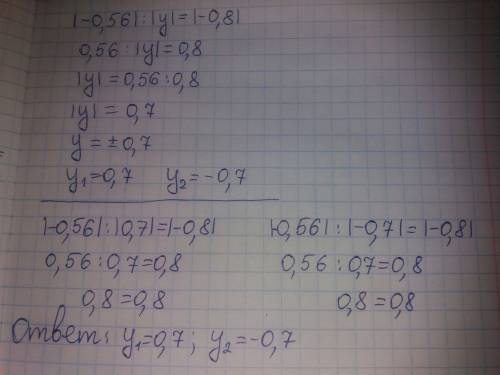 |-0,56|:|y|=|-0,8|
0,56:|y|=0,8
|y|=0,56:0,8
|y|=0,7
y=±0,7
y₁=0,7 y₂=-0,7
|-0,56|:|0,7|=|-0,8|
0,56:0,7=0,8
0,8=0,8
|-0,56|:|-0,7|=|-0,8|
0,56:0,7=0,8
0,8=0,8
Ответ: y₁=0,7; y₂=-0,7